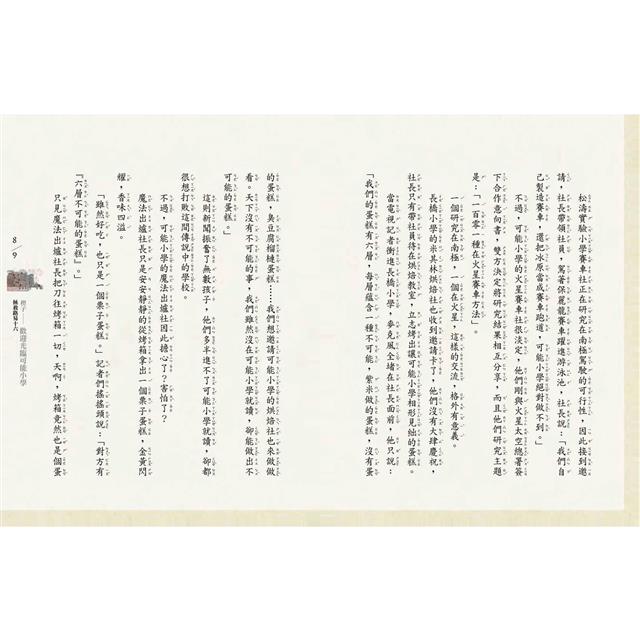 松濤實驗小學賽車社正在研究在南極駕駛的可行性，因此接到邀
請，社長帶領社員，駕著保麗龍賽車躍進游泳池，社長說：「我們自
己製造賽車，還把冰原當成賽車跑道，可能小學絕對做不到。」
不過，可能小學的火星賽車社很淡定，他們剛與火星太空總署簽
下合作意向書，雙方決定將研究結果相互分享，而且他們研究主題
是：「一百零一種在火星賽車方法」。
一個研究在南極，一個在火星，這樣的交流，格外有意義。
長橋小學的米其林烘焙社也收到邀請卡了，他們沒有大肆慶祝，
社長只有帶社員待在烘焙教室，立志烤出讓可能小學相形見絀的蛋糕。
當電視記者衝進長橋小學，麥克風全堵在社長面前，他只說：
「我們的蛋糕有六層，每層蘊含一種不可能，紫米做的蛋糕，沒有蛋
的蛋糕，臭豆腐榴槤蛋糕……我們想邀請可能小學的烘焙社也來做做
看。天下沒有不可能的事，我們雖然沒在可能小學就讀，卻能做出不
可能的蛋糕。」
這則新聞振奮了無數孩子，他們多半進不了可能小學就讀，卻都
很想打敗這間傳說中的學校。
不過，可能小學的魔法出爐社因此擔心了？害怕了？
魔法出爐社長只是安安靜靜的從烤箱拿出一個栗子蛋糕，金黃閃
耀，香味四溢。
「雖然好吃，也只是一個栗子蛋糕。」記者們搖搖頭說：「對方有
『六層不可能的蛋糕』。」
只見魔法出爐社長把刀往烤箱一切，天啊，烤箱竟然也是個蛋
8／9
拯救路易十六
楔子 歡迎光臨可能小學